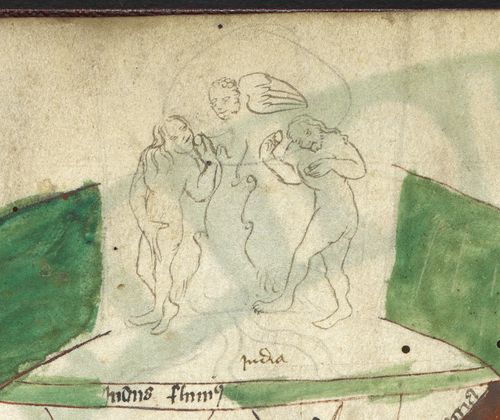 india
indus fluuiꝰ